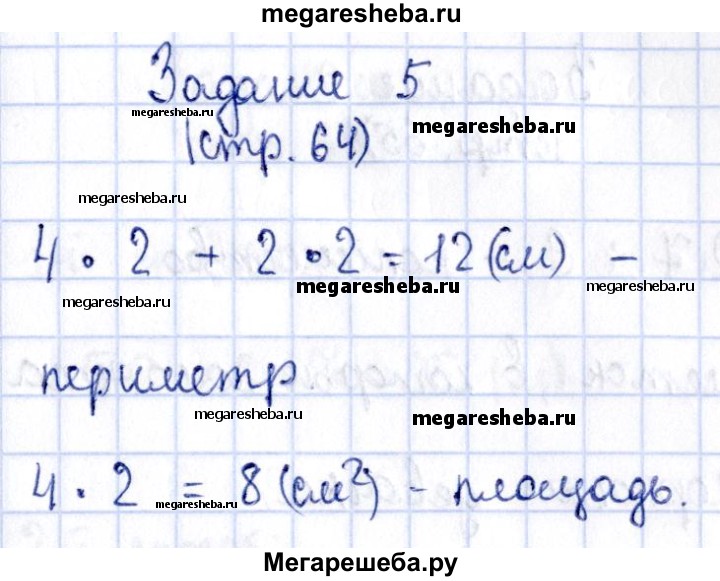 megaresheba.ru
Задание 5
megaresheba.ru
megaresheba.ru
(стр. 64)
megaresheba.ru
4 · 2 + 2 · 2 = 12 (см) -
megaresheba.ru megaresheba.ru megaresheba.ru
периметр.
megaresheba.ru megaresheba.ru
4 · 2 = 8 (см²) - площадь.
megaresheba.ru megaresheba.ru
Мегарешеба.ру